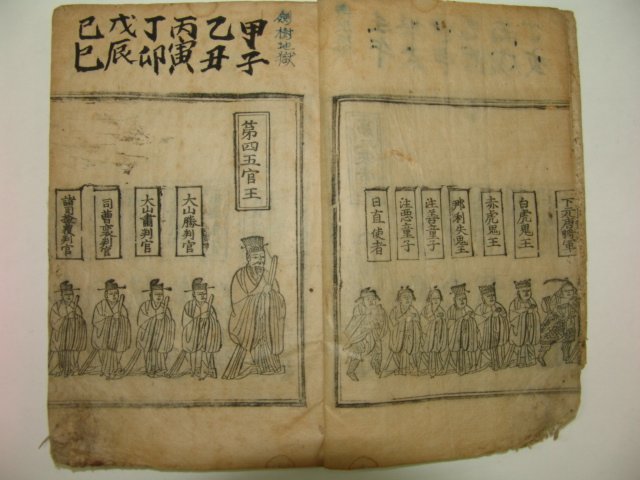 劍樹地獄
甲子
乙丑
丙寅
丁卯
戊辰
己巳
下元唐將軍
白虎鬼王
赤虎鬼王
那利失鬼王
注善童子
注惡童子
日直使者
第四五官王
大山勝判官
大山肅判官
司曹裴判官
諸司
判官